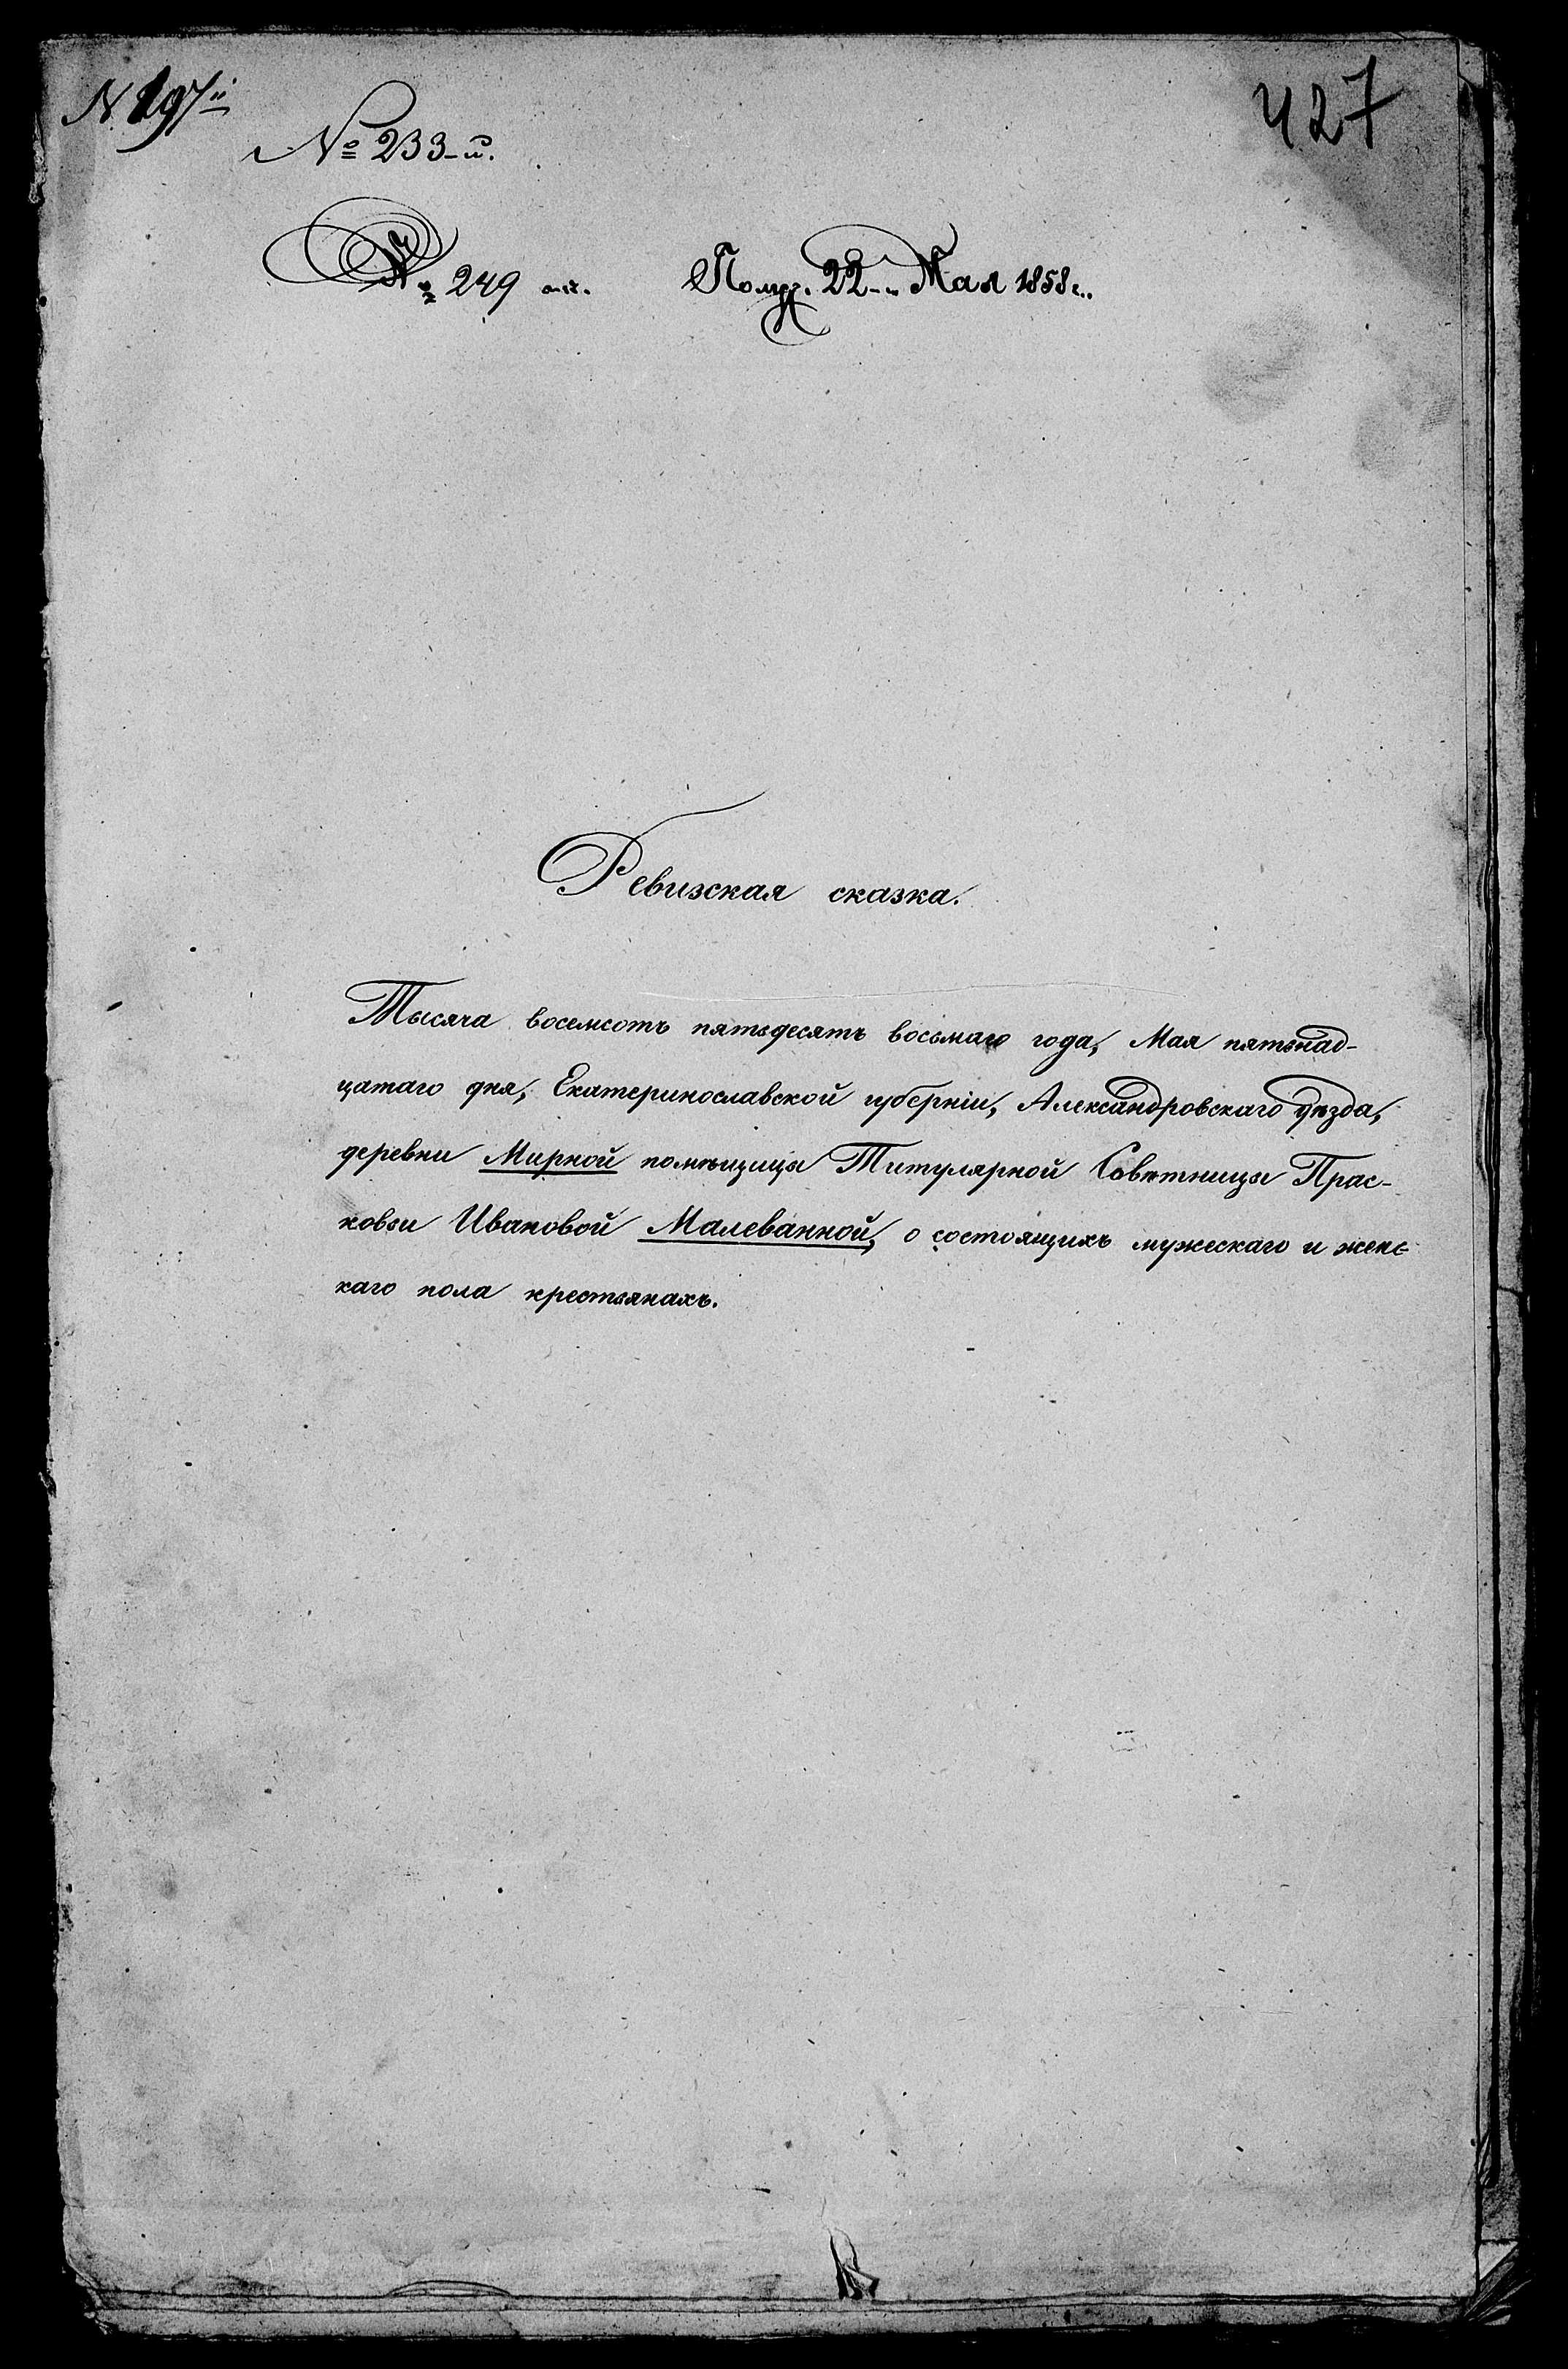 N. 197й
427
№ 233-й.
№ 249
Получ. 22-го Мая 1858 г.
Ревизская сказка.
Тысяча восемсотъ пятьдесятъ восьмаго года, Мая пятьнад-
цатаго дня, Екатеринославской губерніи, Александровскаго уѣзда,
деревни Мирной помѣщицы Титулярной Совѣтницы Прас-
ковьи Ивановой Малеванной, о состоящихъ мужескаго и женс-
каго пола крестьянахъ.